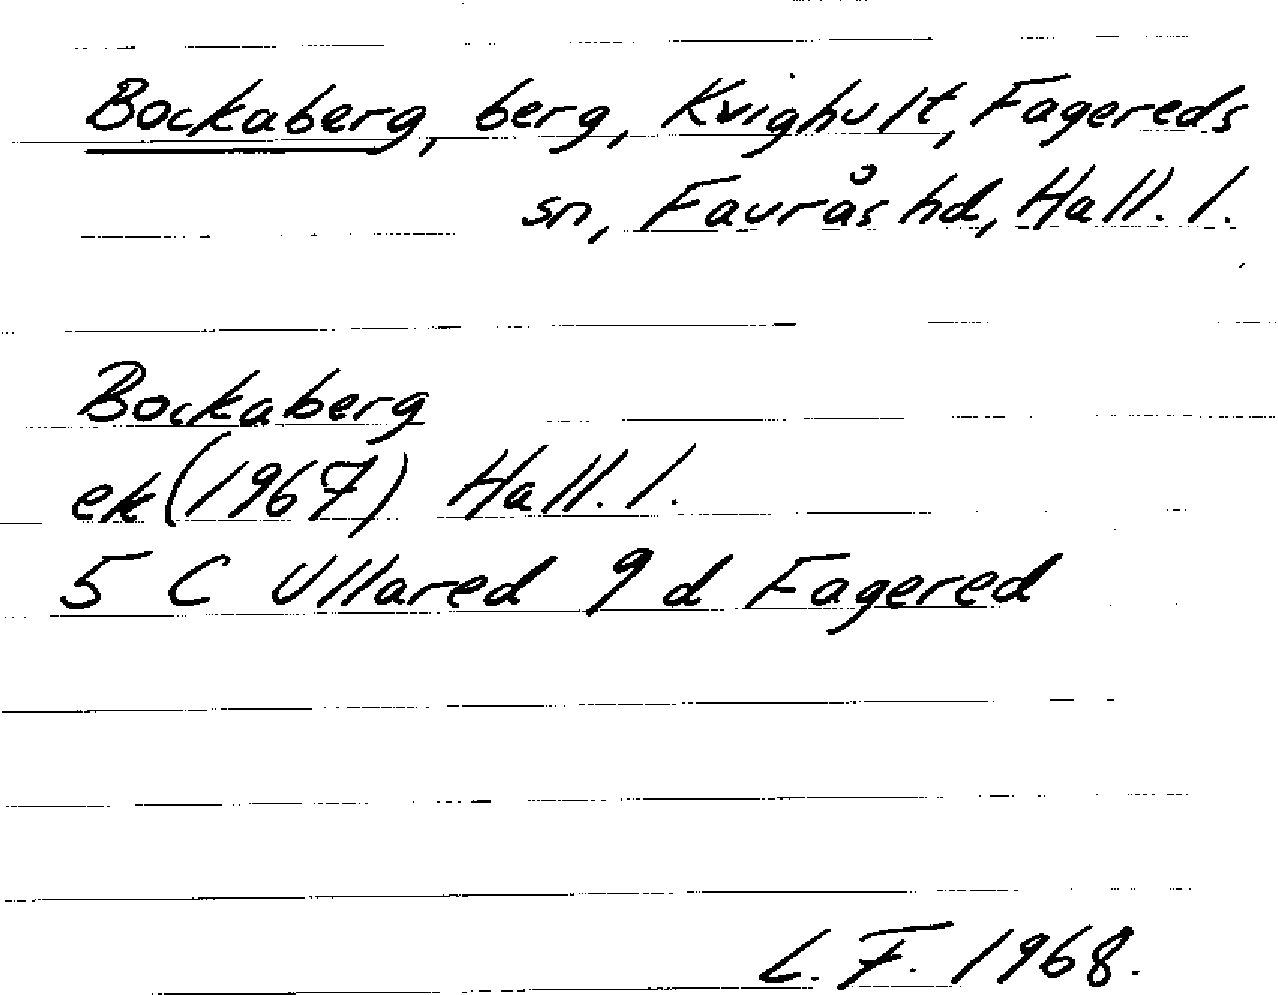 Bockaberg, berg, Kvighult, Fagereds
sn, Faurås hd, Hall. l.
Bockaberg
ek (1967) Hall. l.
5 C Ullared 9 d Fagered
L. F. 1968.